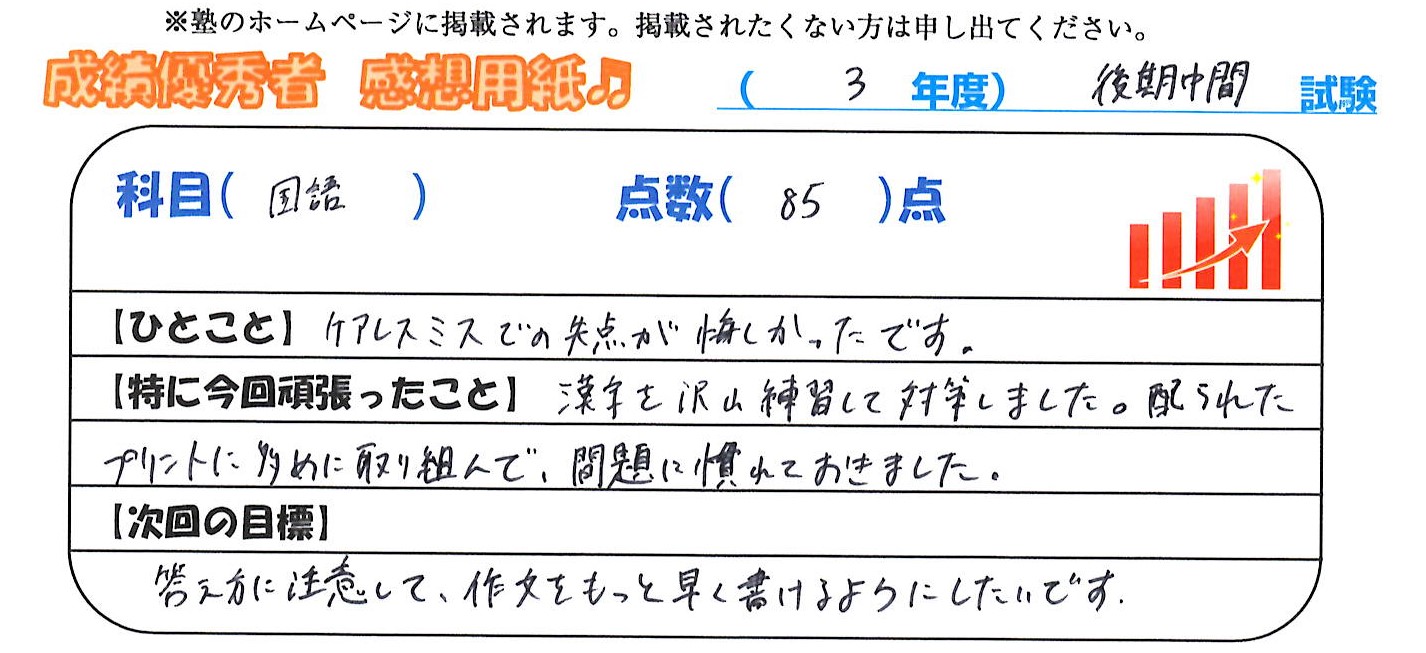 ※塾のホームページに掲載されます。掲載されたくない方は申し出てください。
成績優秀者 感想用紙♫ ( 3 年度) 後期中間 試験
科目( 国語 ) 点数( 85 )点
【ひとこと】ケアレスミスでの失点が悔しかったです。
【特に今回頑張ったこと】漢字を沢山練習して対策しました。配られた
プリントに多めに取り組んで、問題に慣れておきました。
【次回の目標】
答え方に注意して、作文をもっと早く書けるようにしたいです.